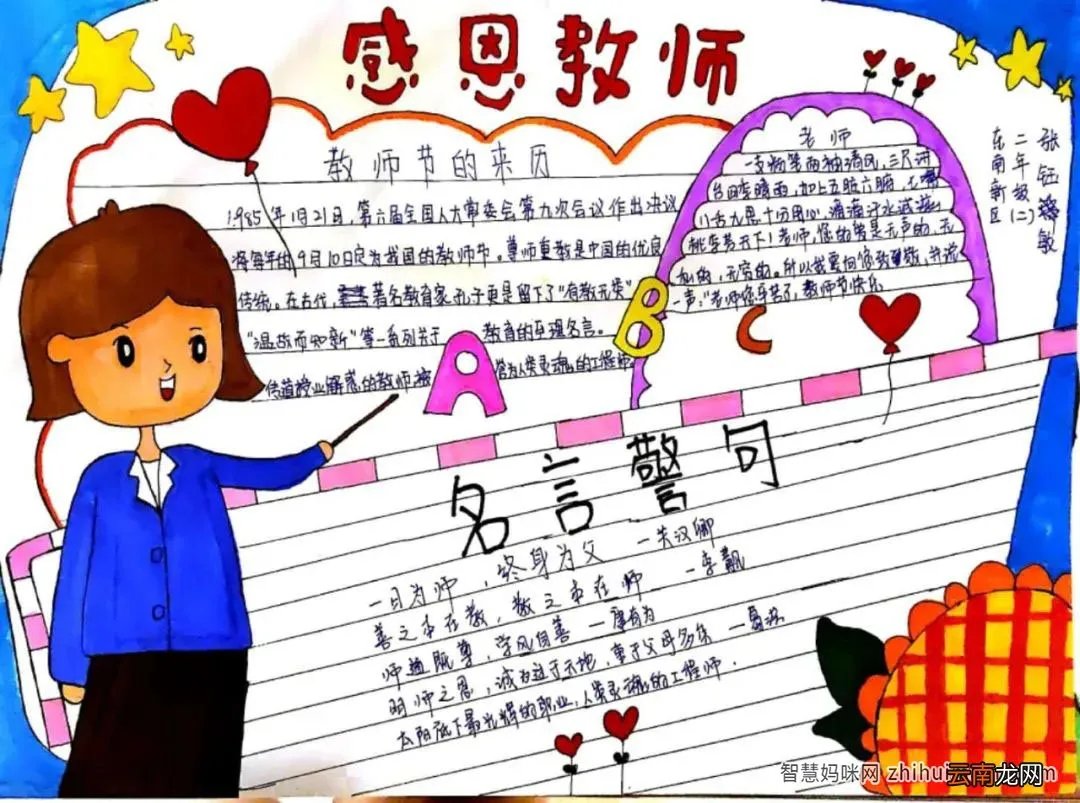 感恩教师
教师节的来历
1985年1月21日,第六届全国人大常委会第九次会议作出决议
将每年的9月10日定为我国的教师节。尊师重教是中国的优良
传统。在古代,著名教育家孔子更是留下了"有教无类"
"温故而知新"等一系列关于教育的至理名言。
传道授业解惑的教师被誉为人类灵魂的工程师
老师
一支粉笔两袖清风,三尺讲
台四季晴雨,加上五脏六腑,七嘴
八舌九思十分用心,滴滴汗水诚滋
桃李芳天下!老师,您的爱是无声的,无
私的,无穷的。所以我要向您致敬,并说
一声:"老师您辛苦了,教师节快乐
东南新区
二年级(二)
张钰 敏
A
B
C
名言警句
一日为师,终身为父 —关汉卿
善之本在教,教之本在师 —李觏
师道既尊,学风自善 —康有为
明师之恩,诚为过于天地,重于父母多矣 —葛洪
太阳底下最光辉的职业,人类灵魂的工程师.
智慧妈咪网 zhihui
云南龙网